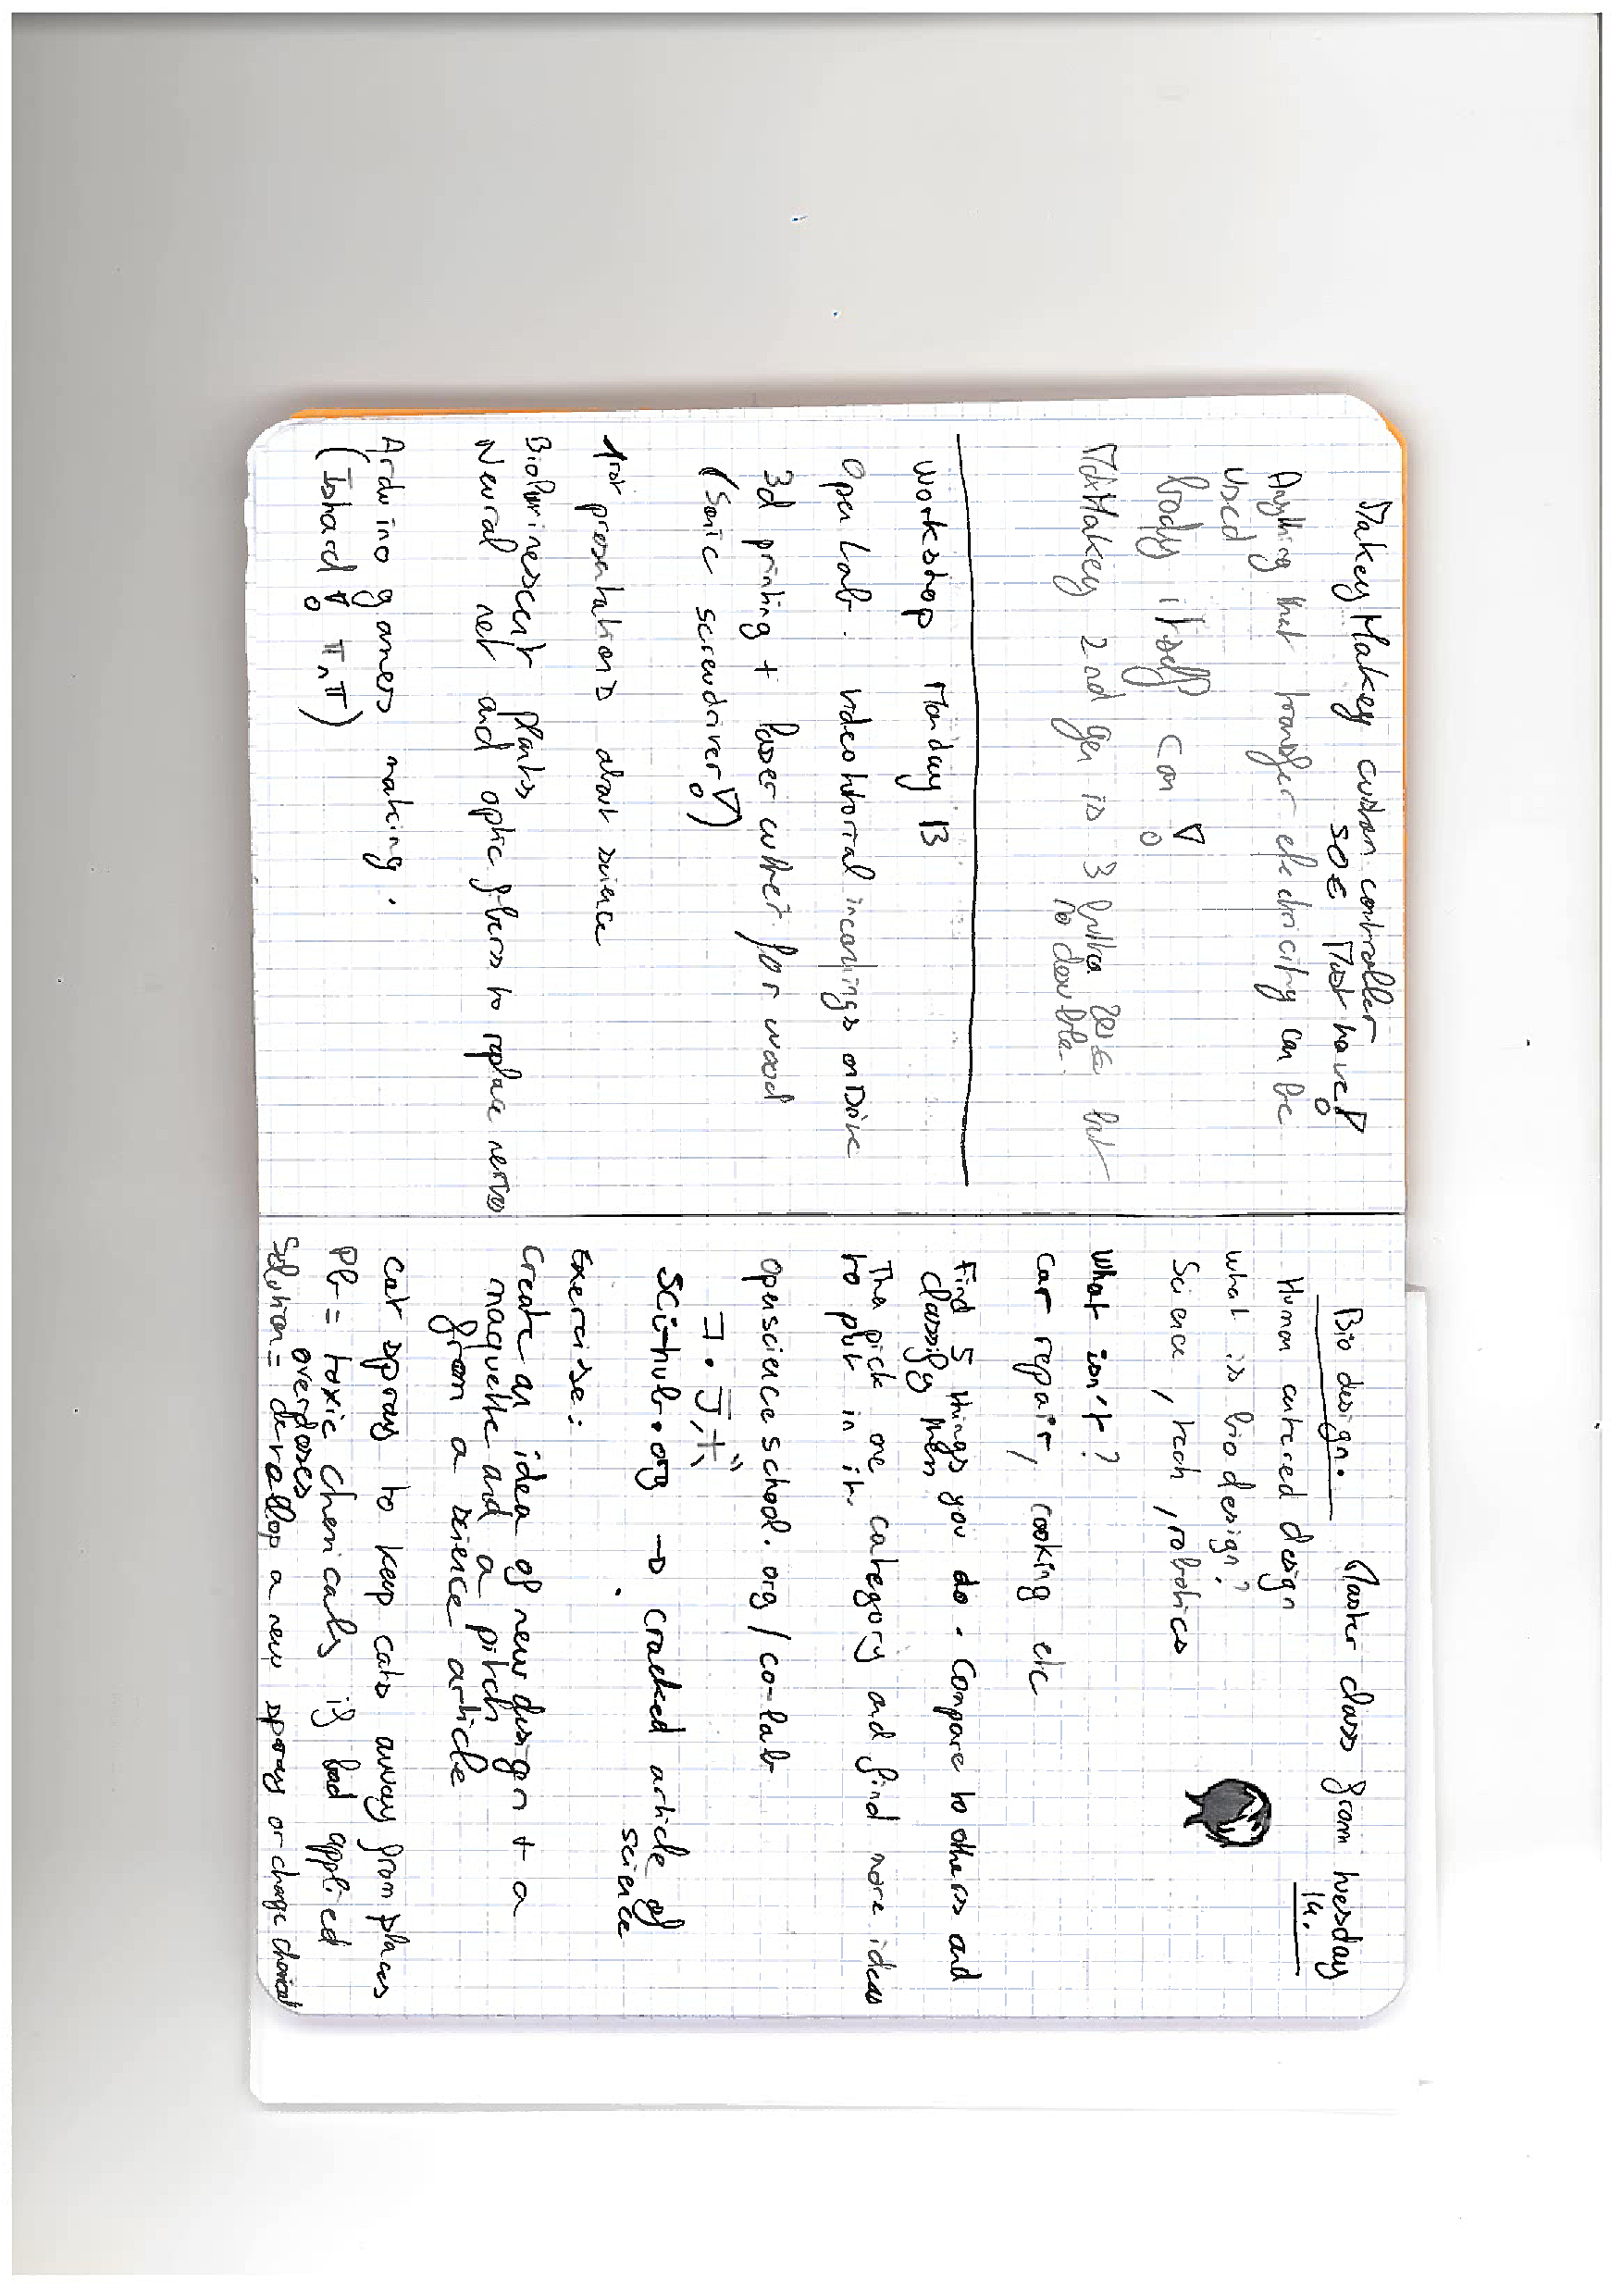 Makey Makey custom controller
50€ Must have!
Anything that transfer electricity can be
used
body itself can!
MaxMakey 2nd gen is 3 but
no doubt
Workshop Monday 13
Open Lab. Video tutorial incomings on Drive
3d printing + laser cutter for wood
(Sonic screwdriver!)
1rst presentations about science
Biolumines​cent plants
Neural net and optic fibers to replace nerves
Arduino gamers making.
(Is hard! π^π)
Bio design. Master class from tuesday
14.
Human entered design
what is bio design?
Science, tech, robotics
What isn't?
car repair, cooking etc
Find 5 things you do. Compare to others and
classify them
The pick one category and find more ideas
to put in it.
openscienceschool.org/co-lab
Sci-hub.org → cracked article of
science
Exercise:
Create an idea of new design + a
maquette and a pitch
from a science article
Cat spray to keep cats away from places
Pb = toxic chemicals if bad applied
overdoses
Solution = devellop a new spray or change chemical